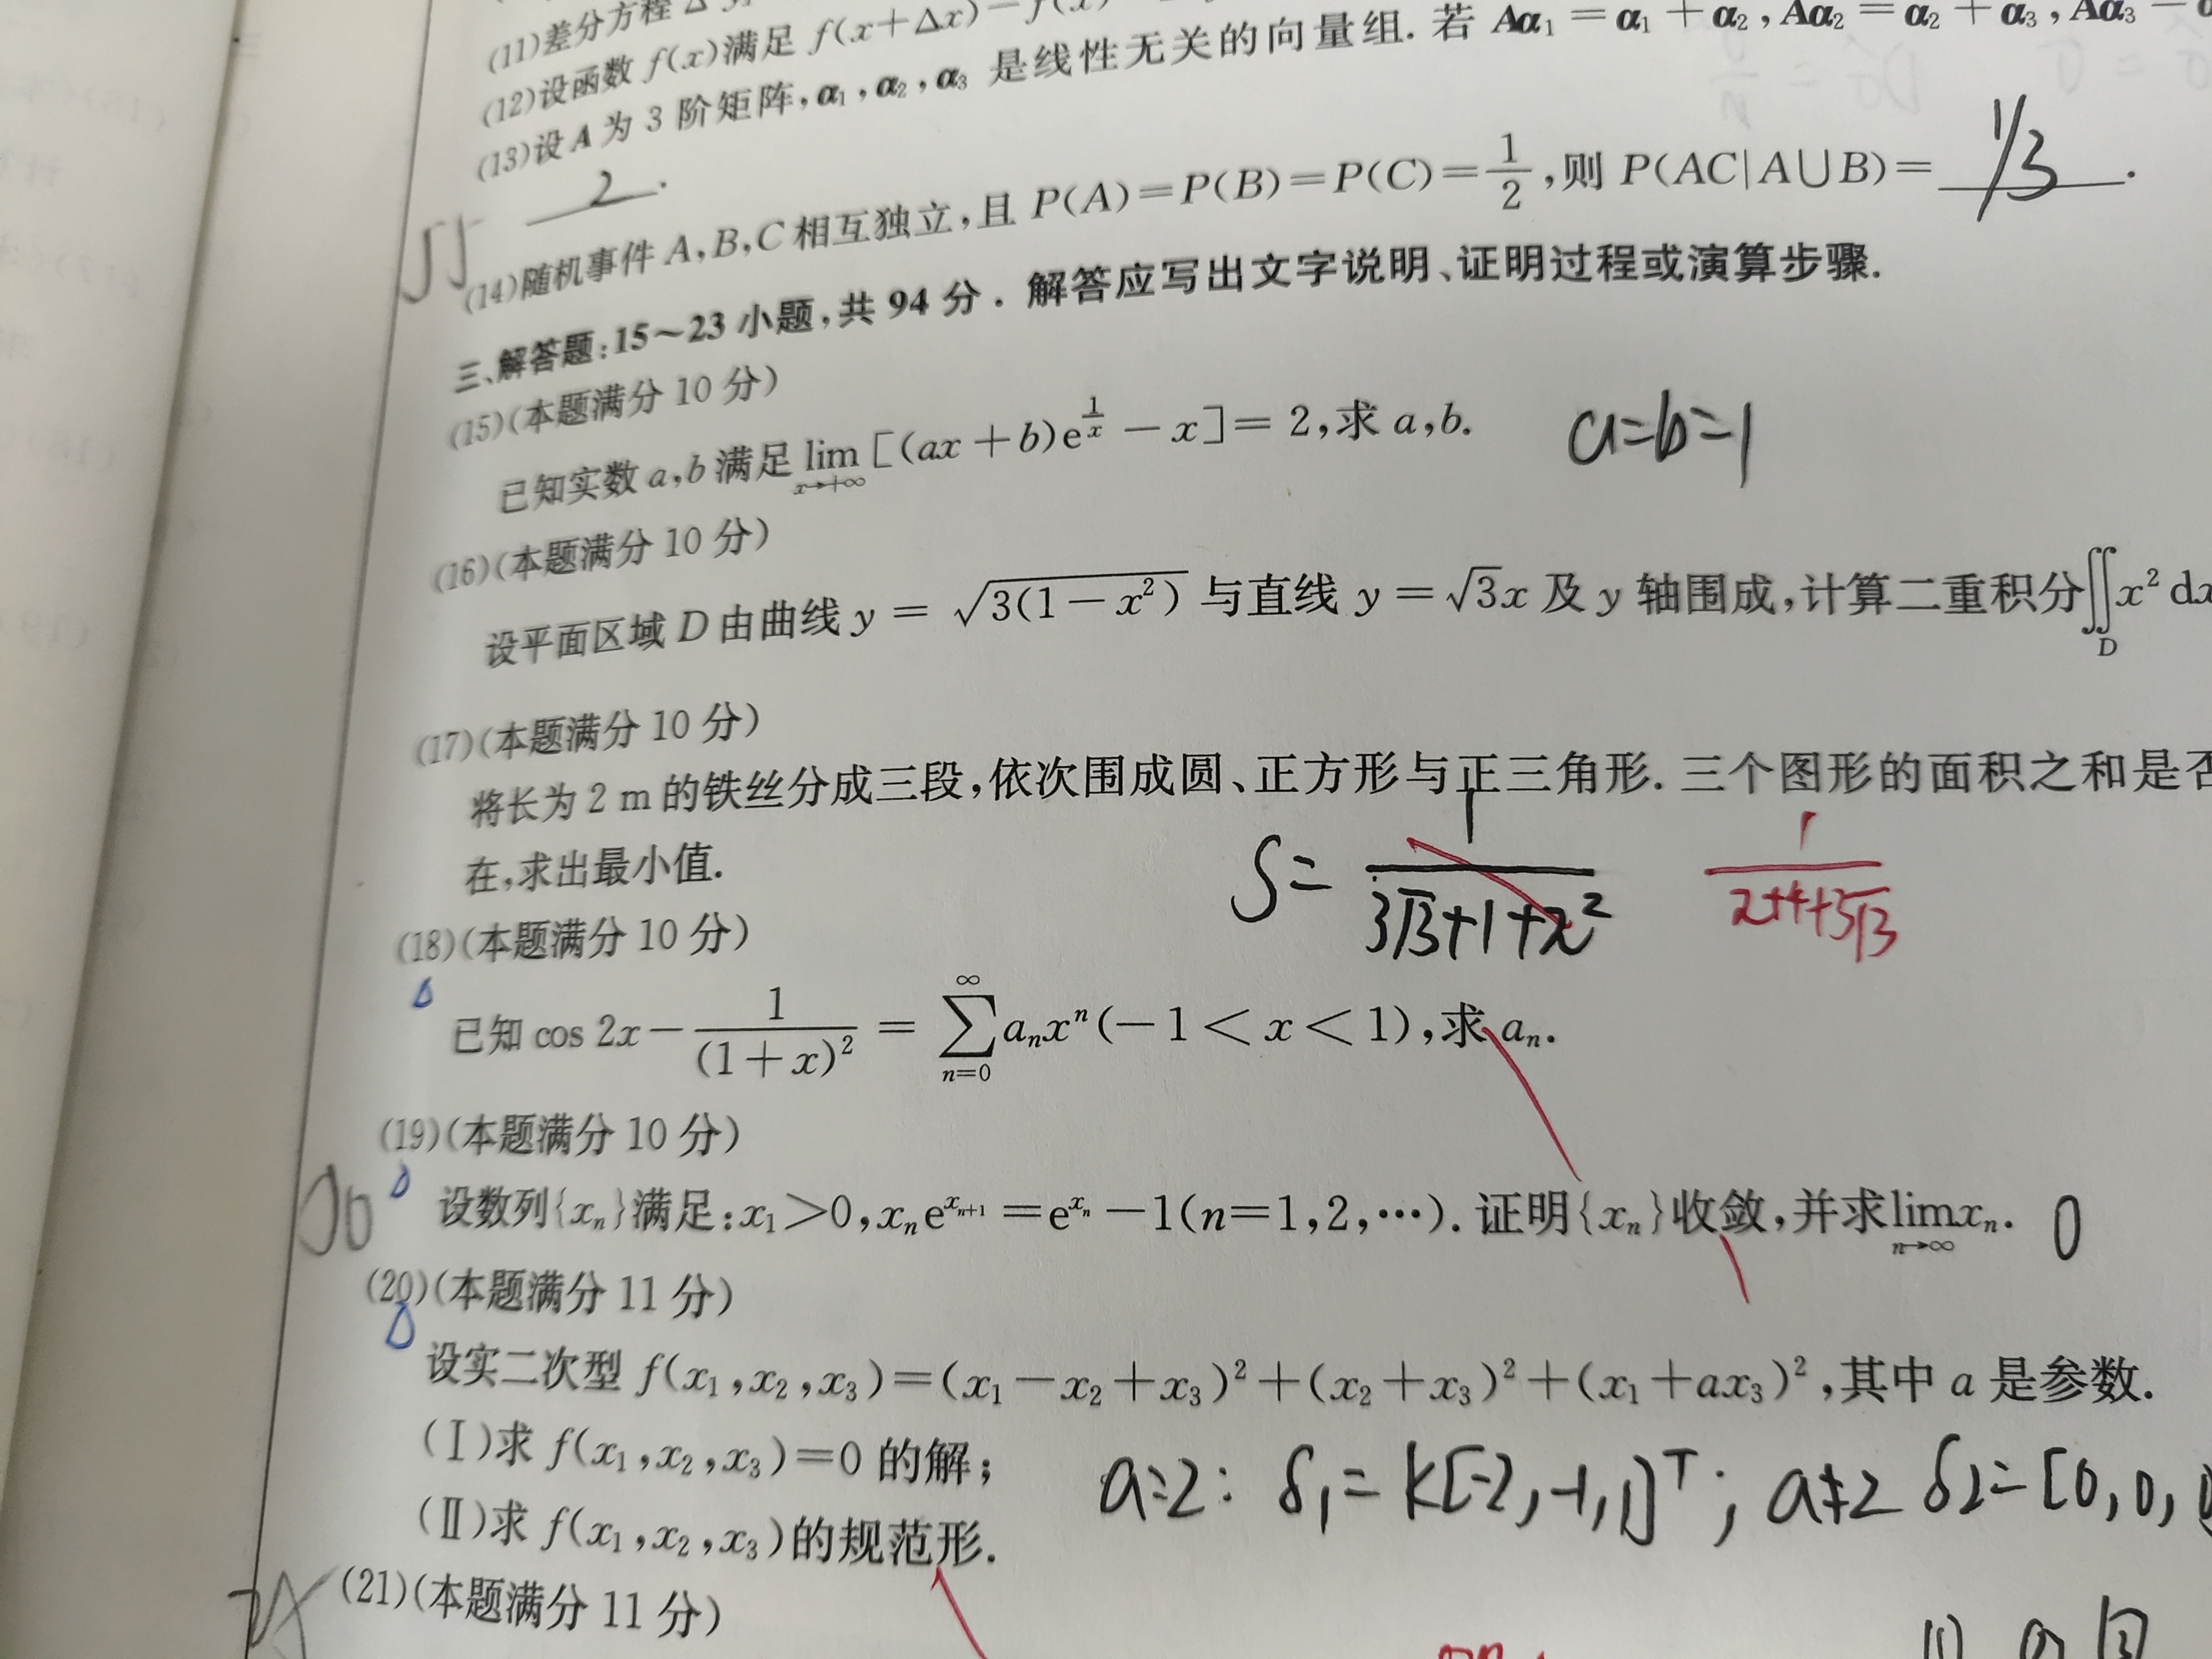 (11)差分方程
(12)设函数 f(x)满足 f(x+Δx)−f(x)
(13)设 A 为 3 阶矩阵,α₁,α₂,α₃ 是线性无关的向量组. 若 Aα₁=α₁+α₂,Aα₂=α₂+α₃,Aα₃
2.
(14)随机事件 A,B,C 相互独立,且 P(A)=P(B)=P(C)=1/2,则 P(AC|A∪B)= 1/3 .
三、解答题:15~23 小题,共 94 分. 解答应写出文字说明、证明过程或演算步骤.
(15)(本题满分 10 分)
已知实数 a,b 满足 lim_{x→+∞} [(ax+b)e^{1/x}−x]=2,求 a,b. a=b=1
(16)(本题满分 10 分)
设平面区域 D 由曲线 y=√(3(1−x²)) 与直线 y=√3x 及 y 轴围成,计算二重积分∬_D x² dx
(17)(本题满分 10 分)
将长为 2 m 的铁丝分成三段,依次围成圆、正方形与正三角形. 三个图形的面积之和是否
在,求出最小值.
S= 1/(3√3+1+π²) 1/(π+4+3√3)
(18)(本题满分 10 分)
已知 cos 2x−1/(1+x)²=∑_{n=0}^{∞} aₙxⁿ(−1<x<1),求 aₙ.
(19)(本题满分 10 分)
设数列{xₙ}满足:x₁>0,xₙe^{xₙ₊₁}=e^{xₙ}−1(n=1,2,⋯). 证明{xₙ}收敛,并求lim_{n→∞}xₙ. 0
(20)(本题满分 11 分)
设实二次型 f(x₁,x₂,x₃)=(x₁−x₂+x₃)²+(x₂+x₃)²+(x₁+ax₃)²,其中 a 是参数.
(Ⅰ)求 f(x₁,x₂,x₃)=0 的解;
a=2: δ₁=k[-2,-1,1]ᵀ; a≠2 δ₂=[0,0,
(Ⅱ)求 f(x₁,x₂,x₃)的规范形.
(21)(本题满分 11 分)